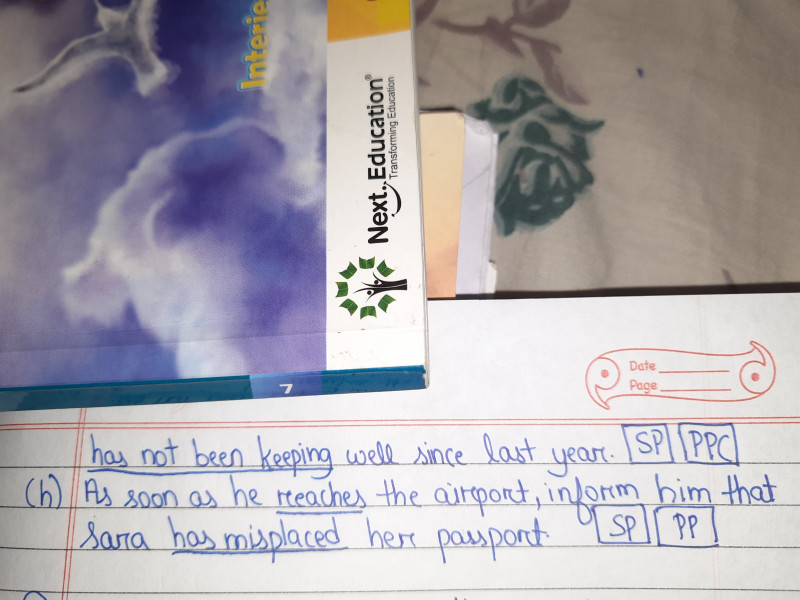 Interie
Next Education®
Transforming Education
7
Date
Page
has not been keeping well since last year. SP PPC
(h) As soon as he reaches the airport, inform him that
Sara has misplaced her passport. SP PP